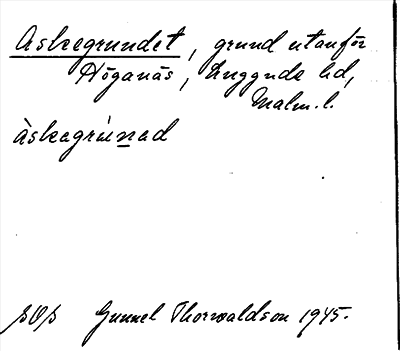 Askegrundet, grund utanför
Höganäs, Luggude hd,
Malm. l.
àskagrúnad
SOS Gunnel Thorwaldson 1945.